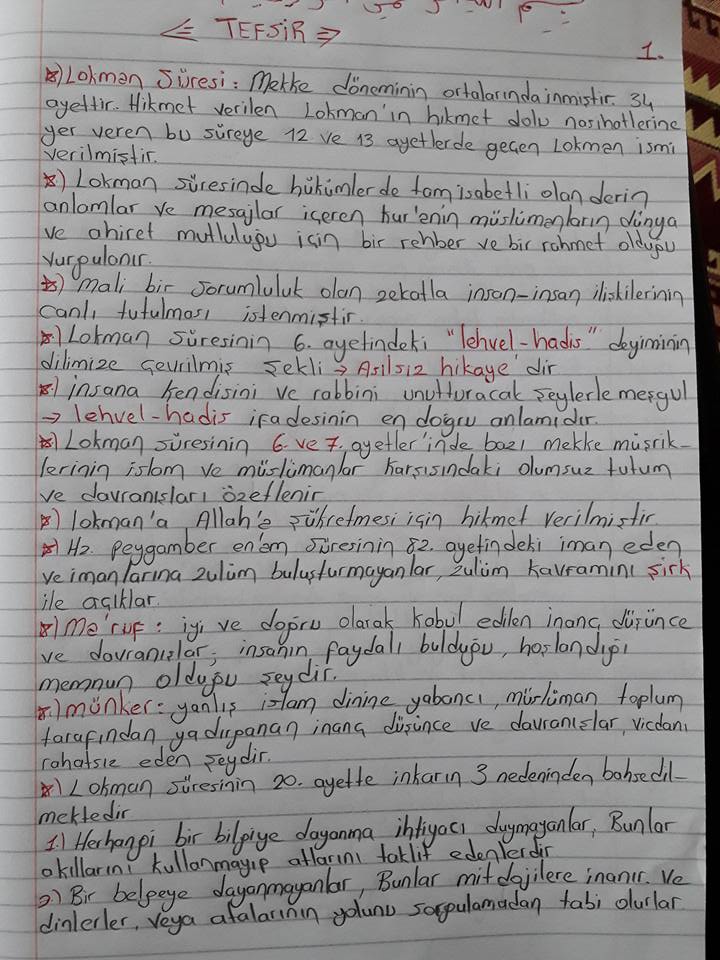 ⇐ TEFSİR ⇒
1.
*) Lokman Sûresi : Mekke döneminin ortalarında inmiştir. 34
ayettir. Hikmet verilen Lokman'ın hikmet dolu nasihatlerine
yer veren bu sûreye 12 ve 13 ayetlerde geçen Lokman ismi
verilmiştir.
*) Lokman sûresinde hükümlerde tam isabetli olan derin
anlamlar ve mesajlar içeren kur'anın müslümanların dünya
ve ahiret mutluluğu için bir rehber ve bir rahmet olduğu
vurgulanır.
*) mali bir sorumluluk olan zekatla insan-insan ilişkilerinin
canlı tutulması istenmiştir.
*) Lokman sûresinin 6. ayetindeki "lehvel-hadis" deyiminin
dilimize çevrilmiş şekli → Asılsız hikaye'dir
*) insana kendisini ve rabbini unutturacak şeylerle meşgul
→ lehvel-hadis ifadesinin en doğru anlamıdır.
*) Lokman sûresinin 6. ve 7. ayetler'inde bazı mekke müşrik-
lerinin islam ve müslümanlar karşısındaki olumsuz tutum
ve davranışları özetlenir
*) Lokman'a Allah'a şükretmesi için hikmet verilmiştir.
*) Hz. peygamber en'am sûresinin 82. ayetindeki iman eden
ve imanlarına zulüm buluşturmayanlar, zulüm kavramını şirk
ile açıklar.
*) Ma'ruf : iyi ve doğru olarak kabul edilen inanç, düşünce
ve davranışlar; insanın faydalı bulduğu, hoşlandığı
memnun olduğu şeydir.
*) münker : yanlış islam dinine yabancı, müslüman toplum
tarafından yadırganan inanç düşünce ve davranışlar, vicdanı
rahatsız eden şeydir.
*) Lokman sûresinin 20. ayette inkarın 3 nedeninden bahsedil-
mektedir
1.) Herhangi bir bilgiye dayanma ihtiyacı duymayanlar, Bunlar
akıllarını kullanmayıp atlarını taklit edenlerdir
2.) Bir belgeye dayanmayanlar, Bunlar mitolojilere inanır. ve
dinlerler, veya atalarının yolunu sorgulamadan tabi olurlar.